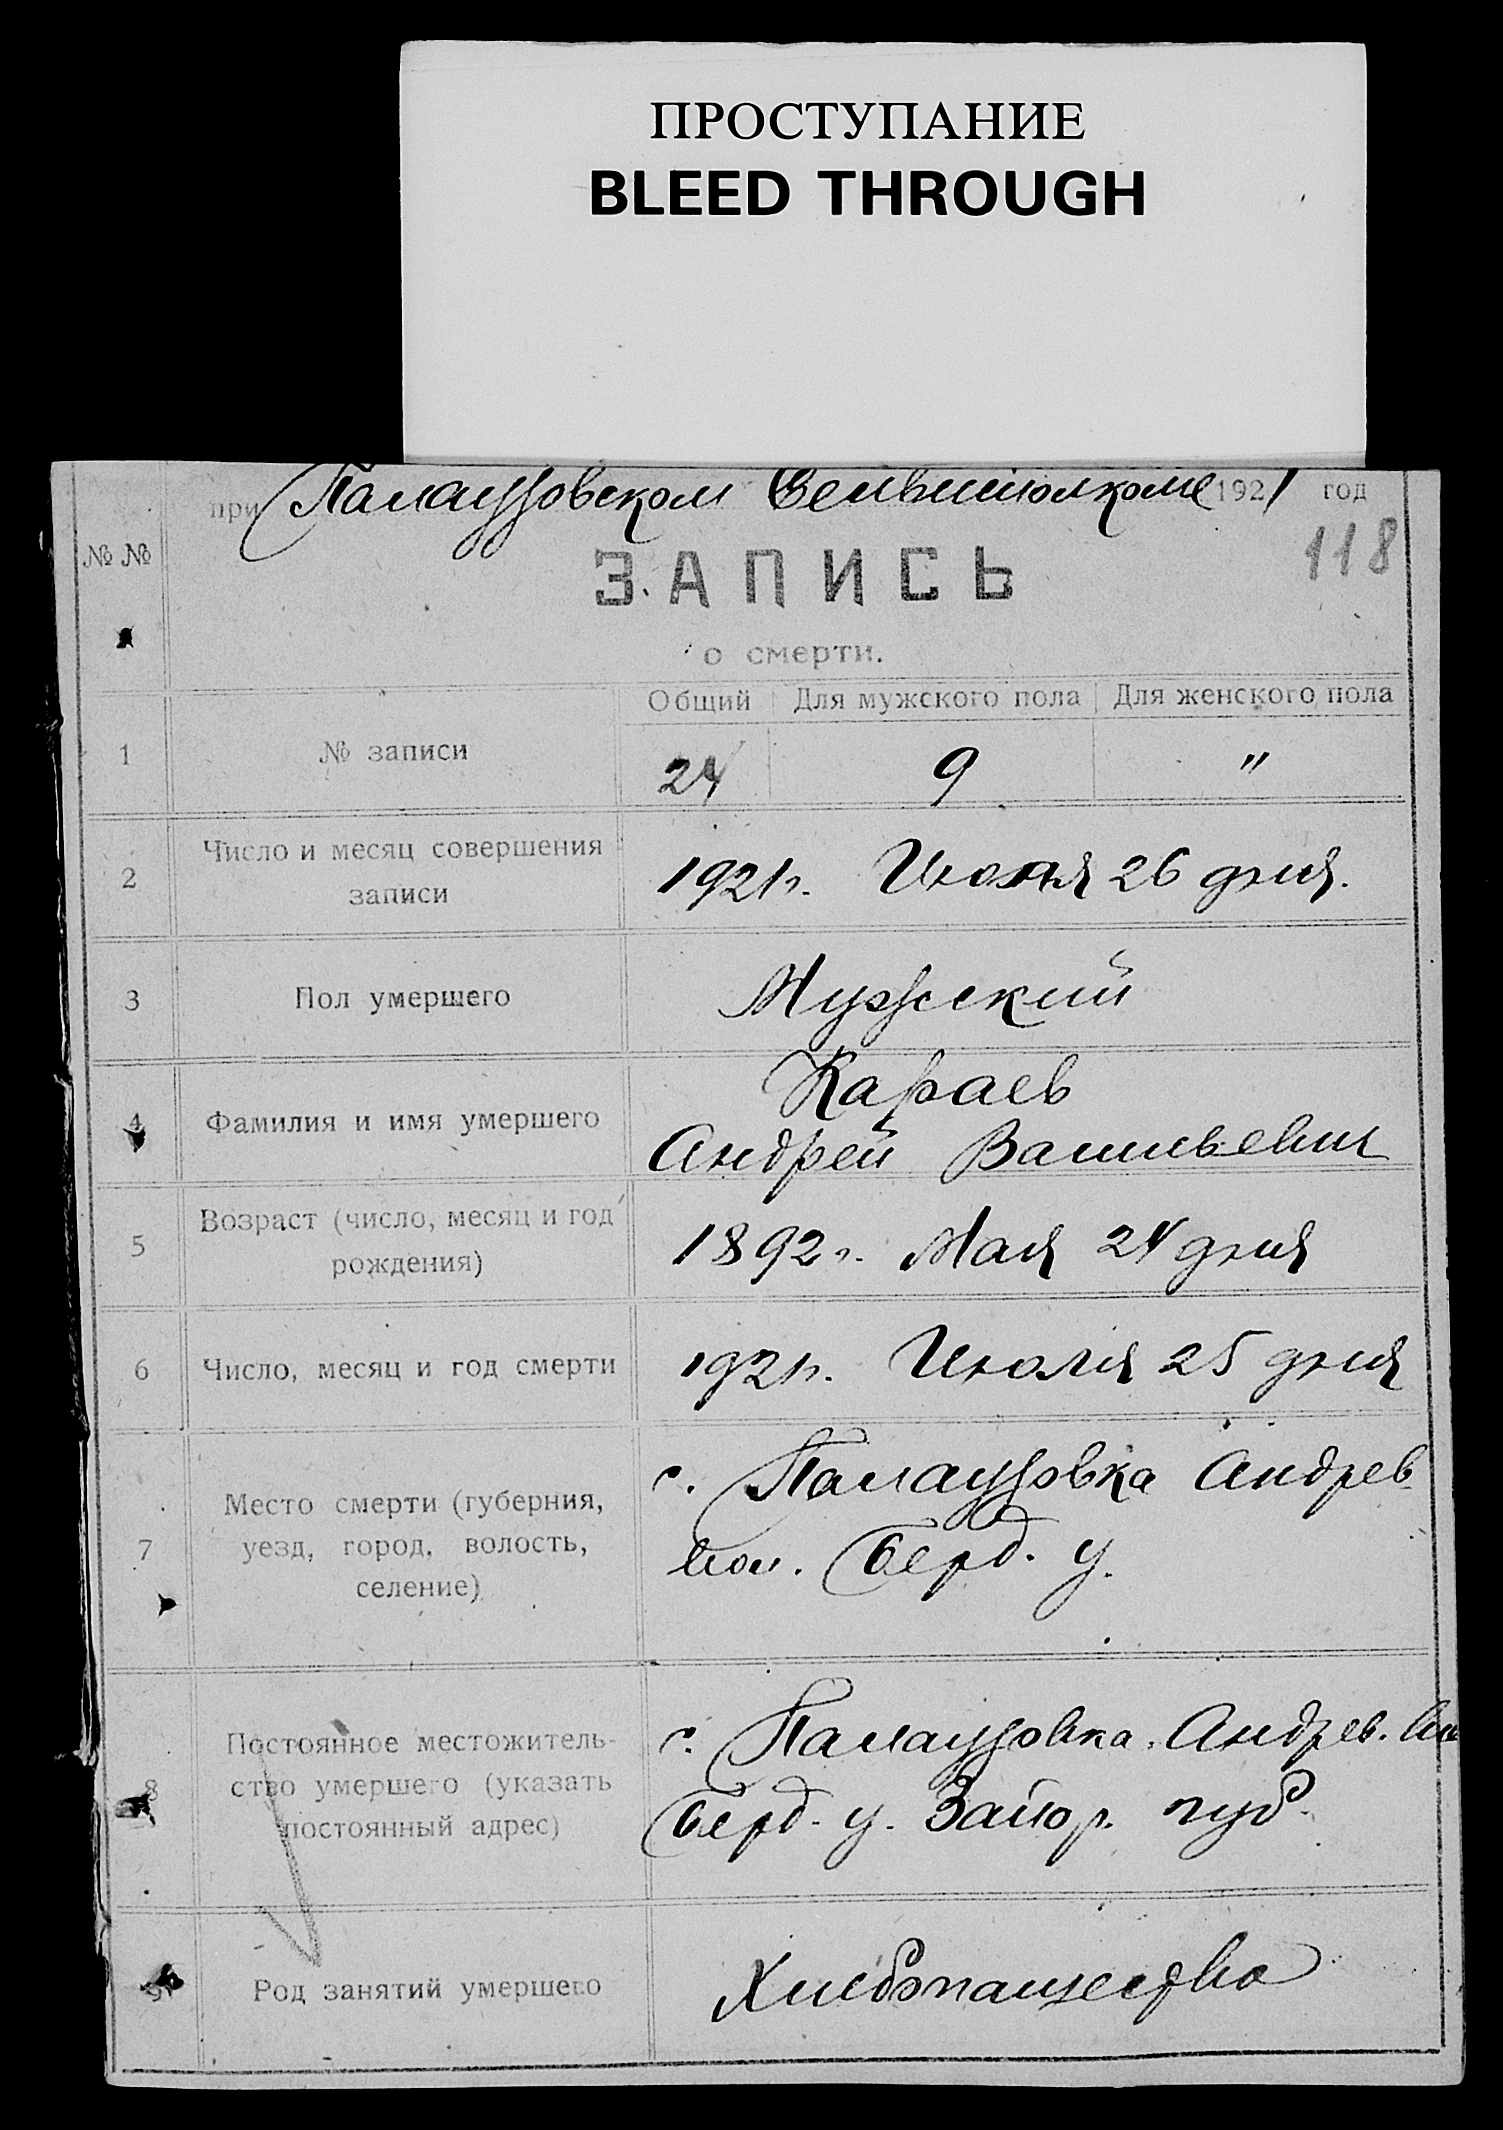 ПРОСТУПАНИЕ
BLEED THROUGH
при Палаузовском Сельисполкоме 1921 год
118
№ №
ЗАПИСЬ
о смерти.
Общий Для мужского пола Для женского пола
1 № записи 24 9 "
2 Число и месяц совершения
записи
1921 г. Июля 26 дня.
3 Пол умершего Мужский
4 Фамилия и имя умершего
Караев
Андрей Васильевич
5 Возраст (число, месяц и год
рождения)
1892 г. Мая 24 дня
6 Число, месяц и год смерти 1921 г. Июля 25 дня
7 Место смерти (губерния,
уезд, город, волость,
селение)
с. Палаузовка Андрев.
вол. Берд. у.
8 Постоянное местожитель-
ство умершего (указать
постоянный адрес)
с. Палаузовка. Андрев.
Берд. у. Запор. губ.
9 Род занятий умершего Хлебопашество